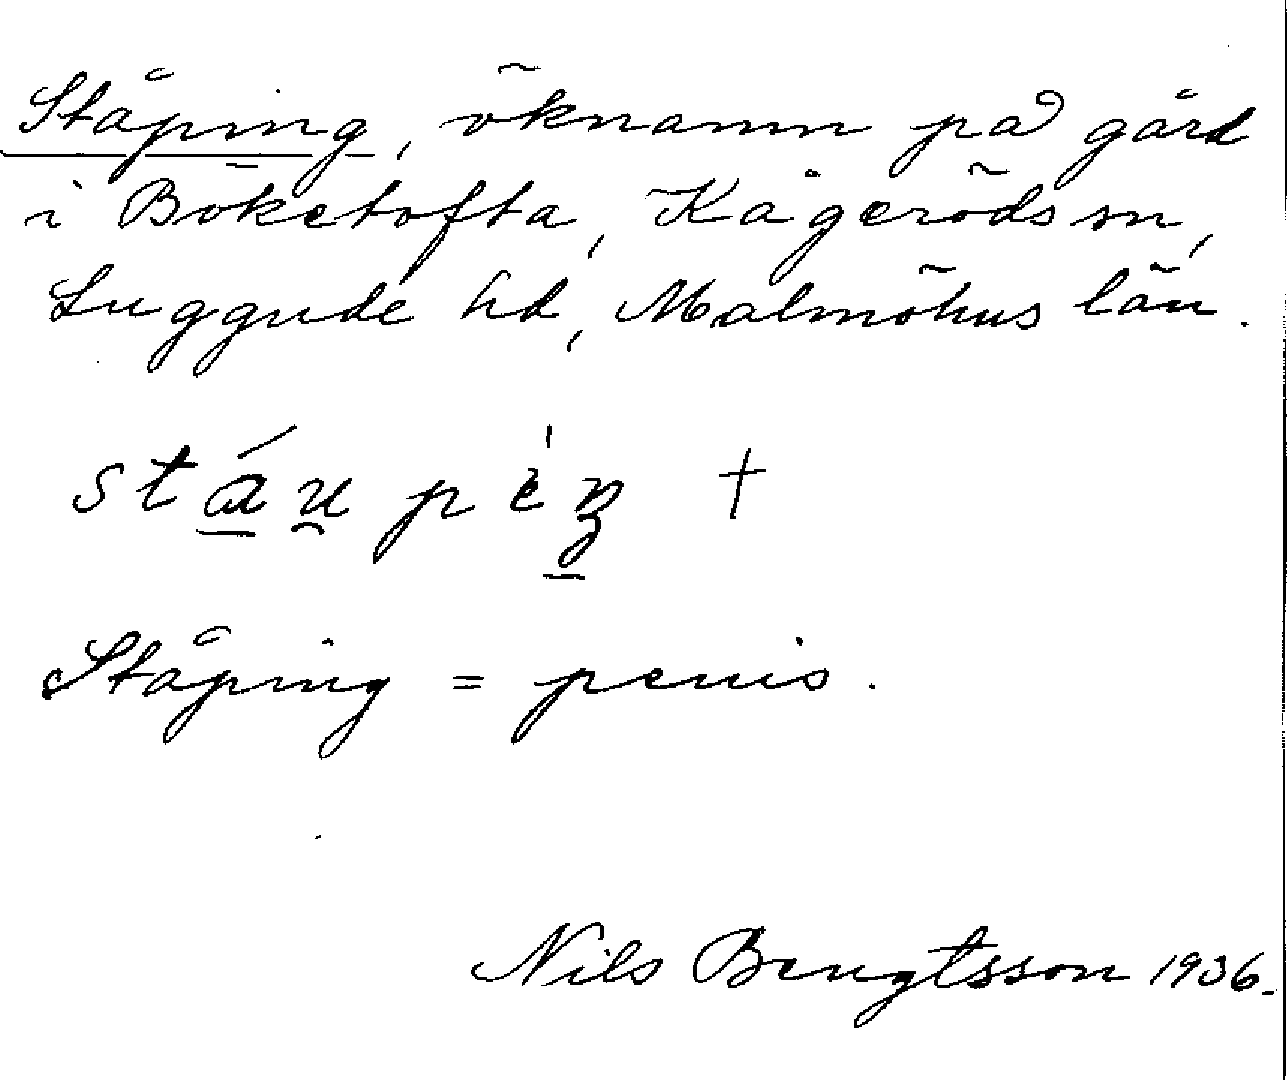 Ståping, öknamn på gård
i Böketofta, Kågeröds sn,
Luggude hd, Malmöhus län.
stáu̯pèŋ †
Ståping = penis.
Nils Bengtsson 1936.